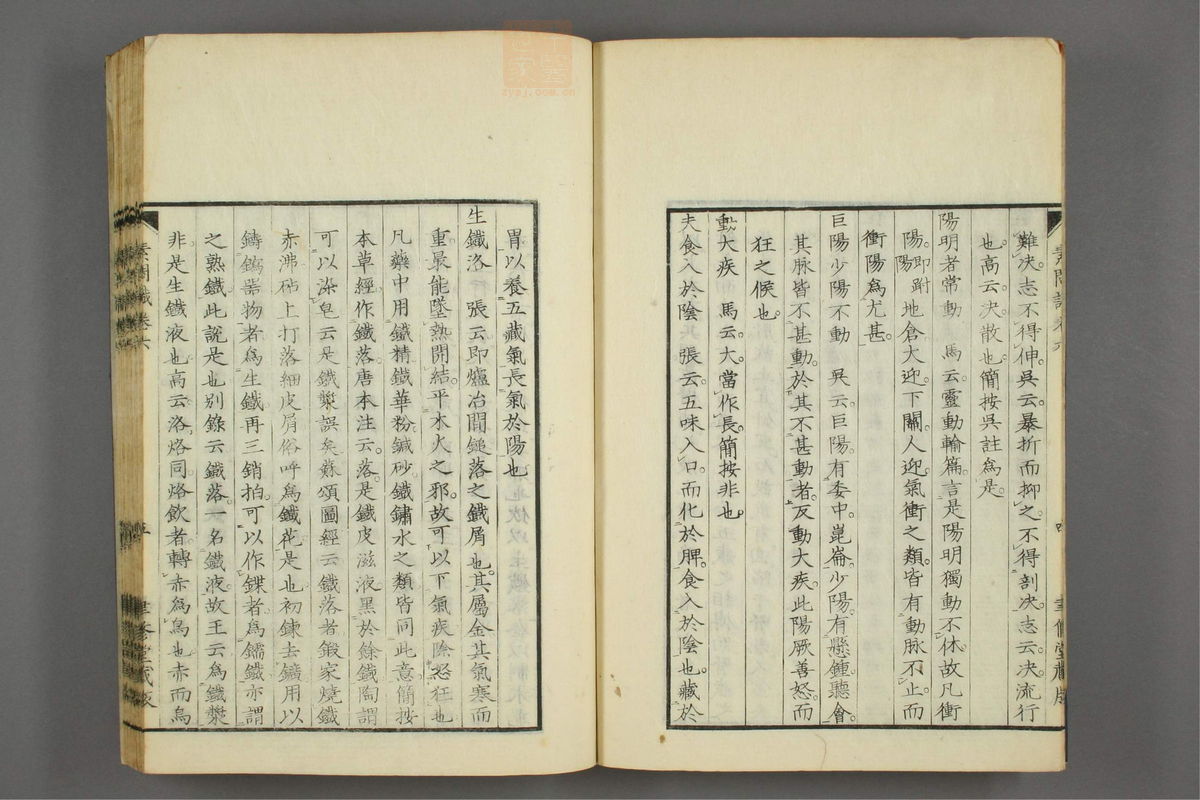 難決志不得伸吳云暴折而抑之不得剖決志云決流行
也高云決散也簡按吳註為是
陽明者常動　馬云靈動輸篇言是陽明獨動不休故凡衝
陽即趺陽地倉大迎下關人迎氣衝之類皆有動脈不止而
衝陽為尤甚
巨陽少陽不動　吳云巨陽有委中崑崙少陽有懸鍾聽會
其脈皆不甚動於其不甚動者反動大疾此陽厥善怒而
狂之候也
動大疾　馬云大當作長簡按非也
夫食入於陰　張云五味入口而化於脾食入於陰也藏於
胃以養五藏氣長氣於陽也
生鐵洛　張云即爐冶間鎚落之鐵屑也其屬金其氣寒而
重最能墜熱開結平木火之邪故可以下氣疾除怒狂也
凡藥中用鐵精鐵華粉鍼砂鐵鏽水之類皆同此意簡按
本草經作鐵落唐本注云落是鐵皮滋液黑於餘鐵陶謂
可以染皂云是鐵漿誤矣蘇頌圖經云鐵落者鍛家燒鐵
赤沸砧上打落細皮屑俗呼為鐵花是也初鍊去鑛用以
鑄鎢器物者為生鐵再三銷拍可以作鍱者為鑐鐵亦謂
之熟鐵此說是也別錄云鐵落一名鐵液故王云為鐵漿
非是生鐵液也高云洛烙同烙飲者轉赤為烏也赤而烏
素問識卷六
五